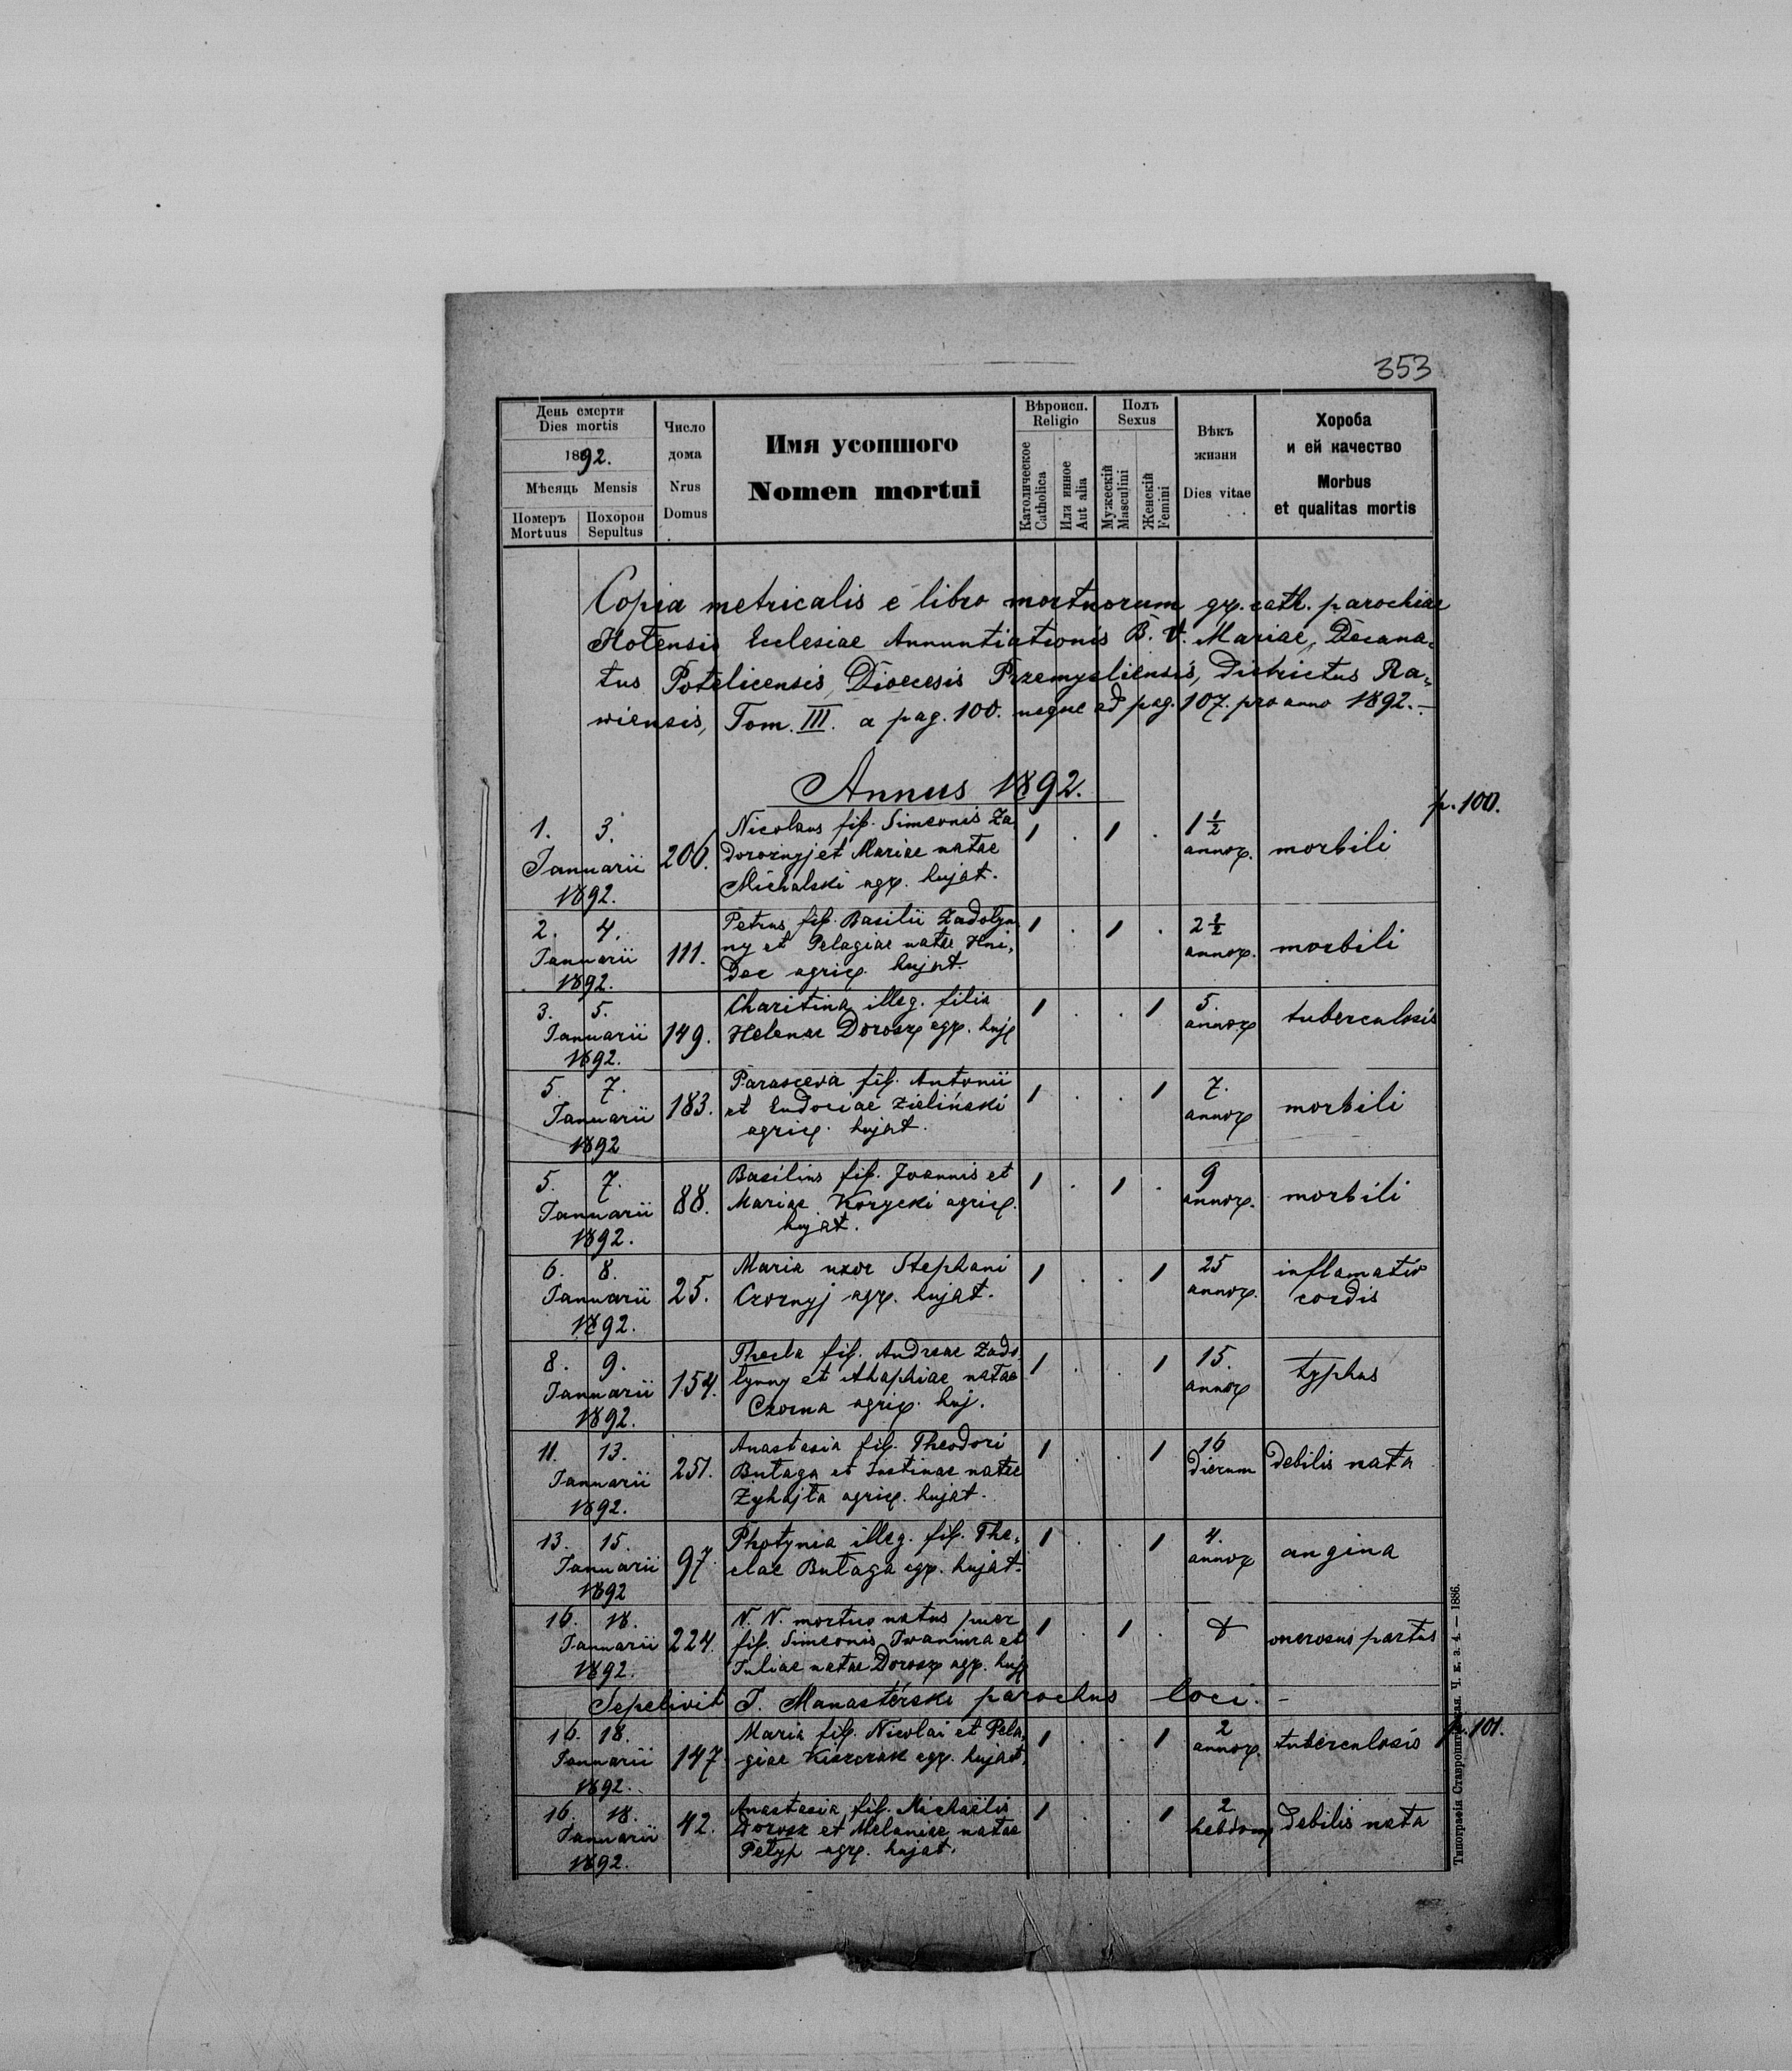 353
День смерти
Dies mortis
1892.
Мѣсяць Mensis
Померъ Похорон
Mortuus Sepultus
Число
дома
Nrus
Domus
Имя усопшого
Nomen mortui
Вѣроисп.
Religio
Католическое
Catholica
Или инное
Aut alia
Полъ
Sexus
Мужескій
Masculini
Женскій
Femini
Вѣкъ
жизни
Dies vitae
Хороба
и ей качество
Morbus
et qualitas mortis
Copia metricalis e libro mortuorum gr. cath. parochiae
Hotensis Ecclesiae Annuntiationis B. V. Mariae, Decana-
tus Potelicensis, Dioecesis Przemysliensis, Districtus Ra-
wiensis, Tom. III. a pag. 100. usque ad pag. 107. pro anno 1892.-
Annus 1892.
p. 100.
1. 3.
Januarii
1892.
206.
Nicolaus fil. Simeonis Za-
doroznyj et Mariae natae
Michalski agr. hujat.
1 . 1 .
1 1/2
annor.
morbili
2. 4.
Januarii
1892.
111.
Petrus fil. Basilii Zadolyn-
ny et Pelagiae natae Hni-
dec agric. hujat.
1 . 1 .
2 1/2
annor.
morbili
3. 5.
Januarii
1892.
149.
Charitina illeg. filia
Helenae Dorosz agr. huj
1 . . 1
5.
annor
tuberculosis
5. 7.
Januarii
1892
183.
Parasceva fil. Antonii
et Eudociae Zieliński
agric. hujat.
1 . . 1
7.
annor
morbili
5. 7.
Januarii
1892.
88.
Basilius fil. Joannis et
Mariae Korycki agric.
hujat.
1 . 1 .
9
annor.
morbili
6. 8.
Januarii
1892.
25.
Maria uxor Stephani
Czornyj agr. hujat.
1 . . 1
25
annor.
inflamatio
cordis
8. 9.
Januarii
1892.
154.
Thecla fil. Andreae Zado-
lynny et Ahaphiae natae
Czorna agric. huj.
1 . . 1
15.
annor
typhus
11. 13.
Januarii
1892.
251.
Anastasia fil. Theodori
Butaga et Justinae natae
Zyhajta agric. hujat.
1 . . 1
16
dierum
debilis nata
13. 15.
Januarii
1892
97.
Photynia illeg. fil. The-
clae Butaga agr. hujat.
1 . . 1
4.
annor
angina
16. 18.
Januarii
1892.
224.
N. N. mortuo natus puer
fil. Simeonis Iwaniura et
Juliae natae Dorosz agr. huj
1 . 1 .
onerosus partus
Sepelivit T. Manasterski parochus loci.-
p. 101.
16. 18.
Januarii
1892.
147
Maria fil. Nicolai et Pela-
giae Kiszczak agr. hujat.
1 . . 1
2
annor.
tuberculosis
16. 18.
Januarii
1892.
42.
Anastasia, fil. Michaëlis
Dorosz et Melaniae natae
Petyp agr. hujat.
1 . . 1
2
hebdom
debilis nata
Типографія Ставропигійская. Ч. к. з. 4. — 1886.